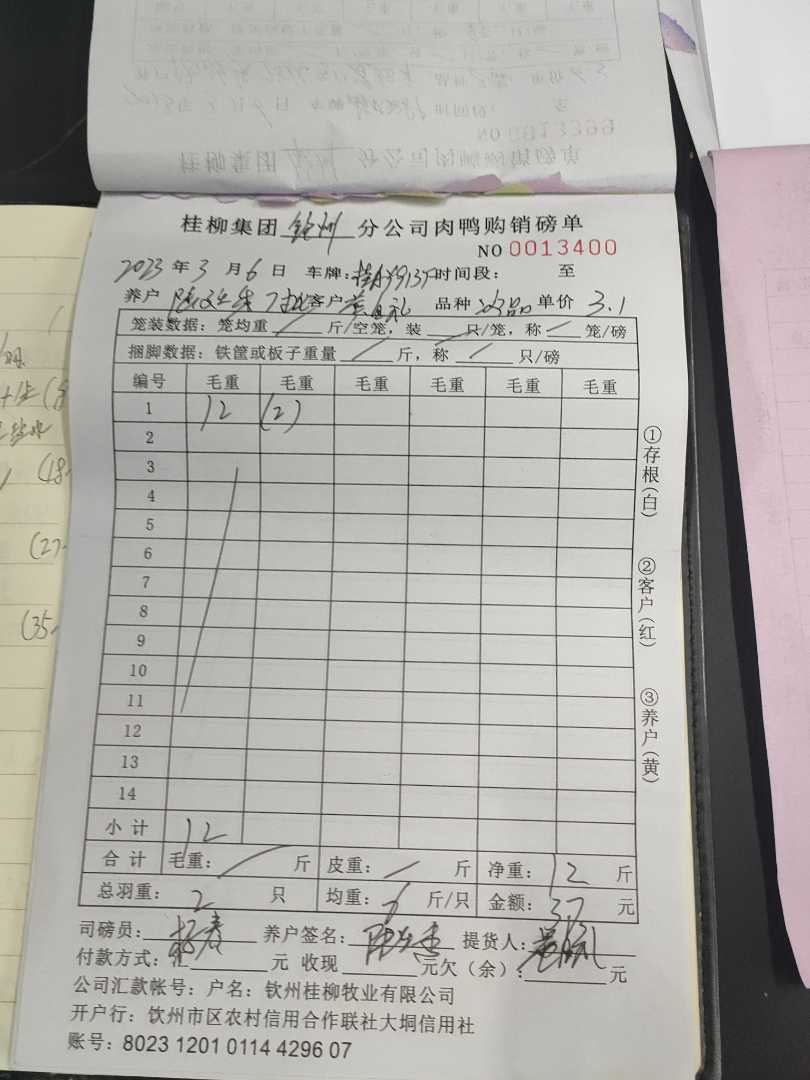 桂柳集团 钦州 分公司肉鸭购销磅单
NO 0013400
2023 年 3 月 6 日 车牌: 时间段: 至
养户 客户 品种 次品 单价 3.1
笼装数据: 笼均重 斤/空笼, 装 只/笼, 称 笼/磅
捆脚数据: 铁筐或板子重量 斤, 称 只/磅
编号 毛重 毛重 毛重 毛重 毛重 毛重
1 12 (2)
2
3
4
5
6
7
8
9
10
11
12
13
14
小计 12
合计 毛重: 斤 皮重: 斤 净重: 12 斤
总羽重: 2 只 均重: 6 斤/只 金额: 37 元
司磅员: 养户签名: 提货人:
付款方式: 汇 元 收现 元欠(余): 元
公司汇款帐号: 户名: 钦州桂柳牧业有限公司
开户行: 饮州市区农村信用合作联社大垌信用社
账号: 8023 1201 0114 4296 07
①存根(白)
②客户(红)
③养户(黄)
(27
(35